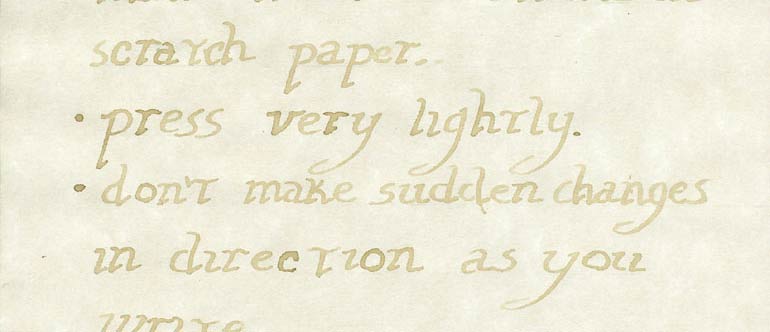 scratch paper..
• press very lightly.
• don't make sudden changes
in direction as you
write